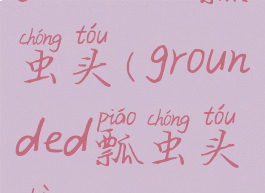 chóng tóu
虫头(groun
piáo chóng tóu
ded瓢虫头